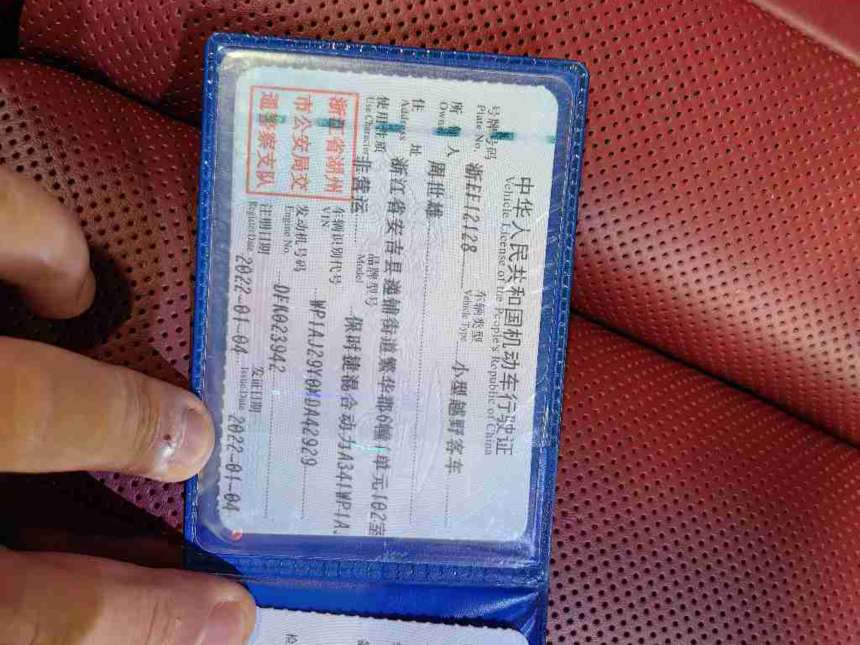 中华人民共和国机动车行驶证
Vehicle License of the People's Republic of China
号牌号码 浙EF12128 车辆类型 小型越野客车
Plate No. Vehicle Type
所有人 周世雄
Owner
住址 浙江省安吉县递铺街道繁华郡6幢1单元102室
Address
使用性质 非营运 品牌型号 保时捷混合动力A341WP1A
Use Character Model
浙江省湖州
市公安局交
通警察支队
车辆识别代号 WP1AJ29Y0MDA42929
VIN
发动机号码 DFK023942
Engine No.
注册日期 2022-01-04 发证日期 2022-01-04
Register Date Issue Date
检